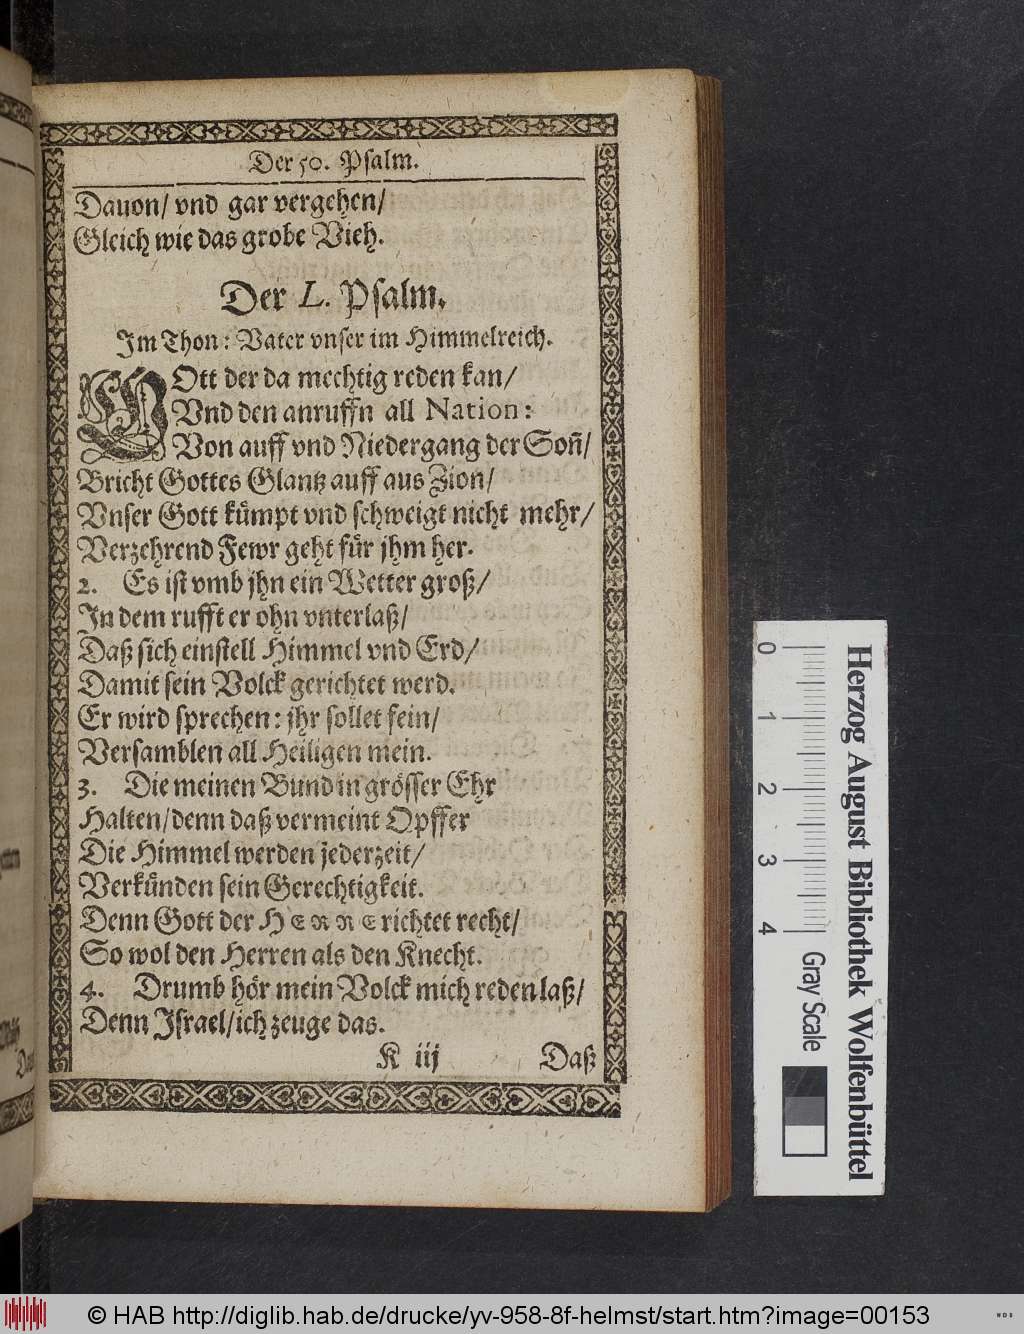 Der 50. Psalm.
Dauon/ vnd gar vergehen/
Gleich wie das grobe Vieh.
Der L. Psalm.
Im Thon: Vater vnser im Himmelreich.
GOtt der da mechtig reden kan/
Vnd den anruffn all Nation:
Von auff vnd Niedergang der Son̄/
Bricht Gottes Glantz auff aus Zion/
Vnser Gott kümpt vnd schweigt nicht mehr/
Verzehrend Fewr geht für jhm her.
2. Es ist vmb jhn ein Wetter groß/
In dem rufft er ohn vnterlaß/
Daß sich einstell Himmel vnd Erd/
Damit sein Volck gerichtet werd.
Er wird sprechen: jhr sollet fein/
Versamblen all Heiligen mein.
3. Die meinen Bund in grösser Ehr
Halten/denn daß vermeint Opffer
Die Himmel werden jederzeit/
Verkünden sein Gerechtigkeit.
Denn Gott der HERRE richtet recht/
So wol den Herren als den Knecht.
4. Drumb hör mein Volck mich reden laß/
Denn Israel/ich zeuge das.
K iij Daß
0 1 2 3 4
Gray Scale
Herzog August Bibliothek Wolfenbüttel
© HAB http://diglib.hab.de/drucke/yv-958-8f-helmst/start.htm?image=00153